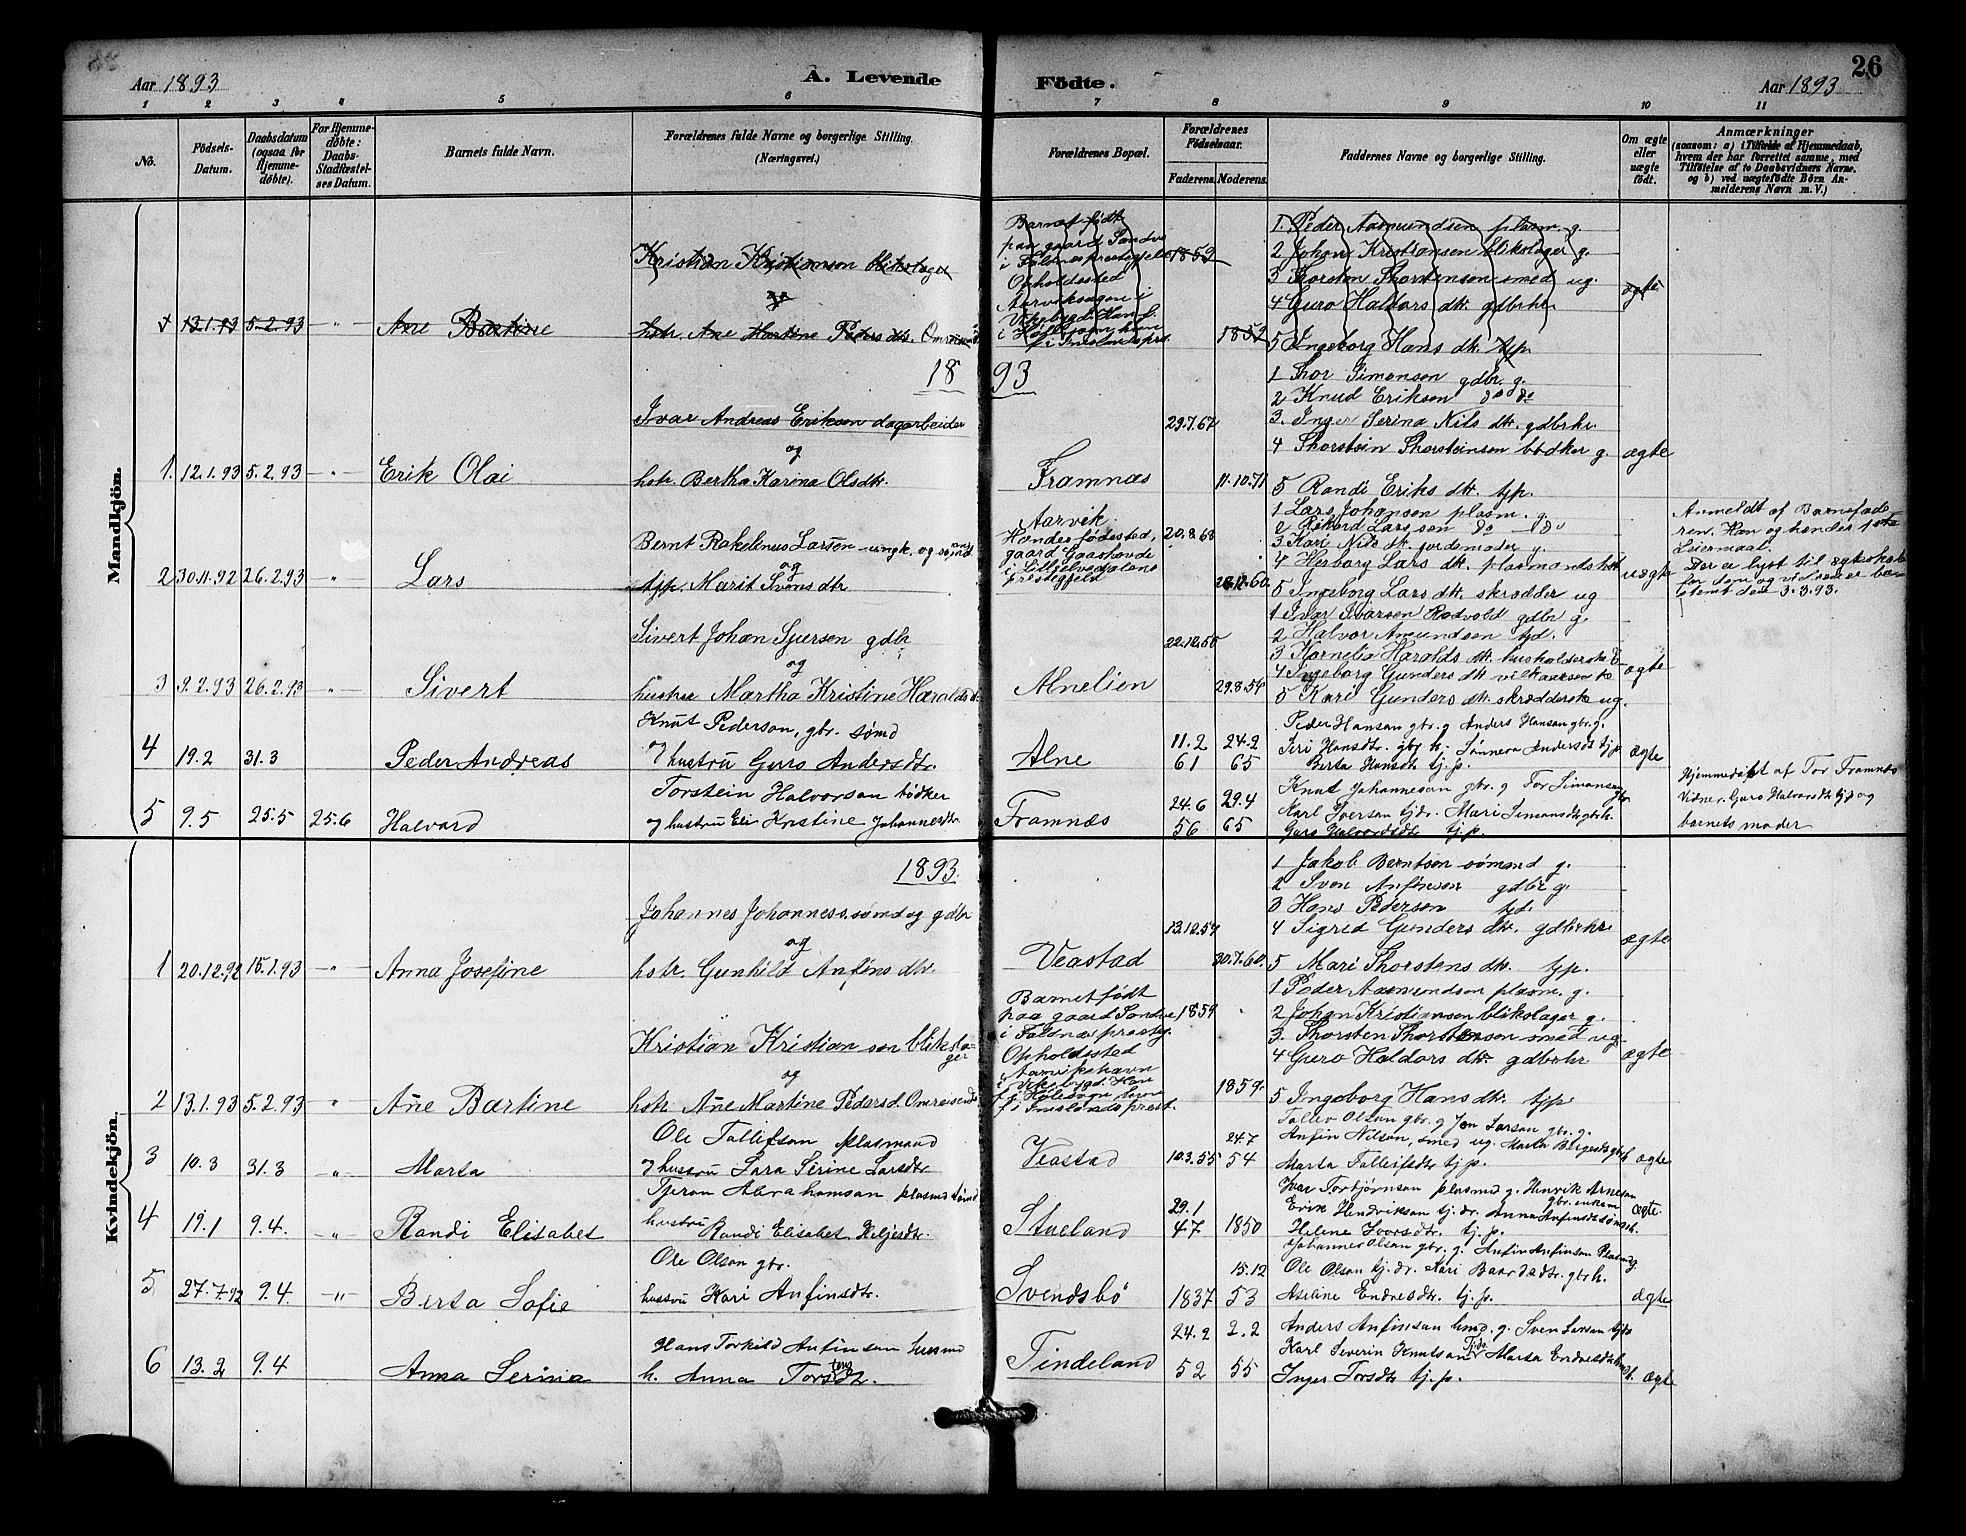 Aar 1893
A. Levende
Fødte.
Aar 1893
26
1 2 3 4 5 6 7 8 9 10 11
No.
Fødsels-Datum.
Daabsdatum (ogsaa for Hjemme-døbte).
For Hjemme-døbte: Daabs-Stadfæstel-ses Datum.
Barnets fulde Navn.
Forældrenes fulde Navne og borgerlige Stilling. (Næringsvei.)
Forældrenes Bopæl.
Forældrenes Fødselsaar.
Faderens. Moderens.
Faddernes Navne og borgerlige Stilling.
Om ægte eller uægte født.
Anmærkninger
(saasom: a) i Tilfælde af Hjemmedaab, hvem der har forrettet samme, med Tilføielse af to Daabsvidners Navne, og b) ved uægtefødte Børn An-melderens Navn m. V.)
Mandkjøn.
13.1.93 5.2.93 Ane Bertine
Kristian Kristiansen blikslager
og
hstr. Ane Martine Peders dtr.
Barnet født
paa gaard Sandve
Opholdssted
1859
1859
1. Peder Aasmundsen plasm. g.
2 Johan Kristiansen blikslager g.
3 Torsten Thorstensen smed ug.
4 Guro Haldors dtr. gdbrkr.
5 Ingeborg Hans dtr. tjp.
ægte
1893
1. 12.1.93 5.2.93 Erik Olai
Ivar Andreas Eriksen dagarbeider
og
hstr. Bertha Karina Olsdtr.
Framnæs
29.7.67
11.10.71
1 Thor Simonsen gdbr. g.
2 Knud Eriksen do do
3. Inger Serina Nils dtr. gdbrkr.
4 Thorstein Thorsteinsen bødker g.
5 Randi Eriks dtr. tjp.
ægte
2 30.11.92 26.2.93 Lars
Bernt Rakelinus Larsen ungk. og sømd
og
tjp. Marit Svens dtr
Aarvik.
Hendes fødested,
gaard
prestegjeld
20.8.68
1 Lars Johansen plasm. g.
2 Rikard Larssen do do
3. Kari Nils dtr. jordemoder g.
4 Herborg Lars dtr. plasmandshstr
5 Ingeborg Lars dtr. skrædder ug
uægte
Anmeldt af Barnefade-
ren. Han og hendes 1ste
Leiermaal.
Der er lyst til ægteskab
for dem og vielsen er be-
stemt den 3.3.93.
3 9.2.93 26.2.93 Sivert
Sivert Johan Sjursen gdbr
og
hustru Martha Kristine Haralds dtr.
Alnelien
29.8.54
1 Ivar Ivarsen Rødvold gdbr g.
2 Halvor Amundsen tjd.
3 Kornelia Haralds dtr. husholderske
4 Ingeborg Gunders dtr.
5 Kari Gunders dtr. skrædderske ug.
ægte
4 19.2 31.3 Peder Andreas
Knut Pederson, gbr. sømd
og hustru Guro Andersdtr.
Alne
11.2 61
24.2 65
Peder Hanson gbr. g Anders Hanson gbr. g.
Siri Hansdtr. gbr. h. Sønneva Andersdtr tj.p.
Berta Hansdtr tj. p.
ægte
5 9.5 25.5 25.6 Halvard
Torstein Halvorson bødker
og hustru Eli Kristine Johannesdtr.
Framnæs
24.6 56
29.4 65
Knut Johanneson gbr. g Tor Simonson gbr.
Karl Iverson tj dr. Mari Simonsdtr gbrh.
Guro Halvordsdtr tj. p.
Hjemmedøbt af Tor Framnæs
Vidner: Guro Halvorsdtr tjp og
barnets moder
Kvindekjön.
1893.
1 20.12.92 15.1.93 Anna Josefine
Johannes Johanness. sømd og gdbr
og
hstr. Gunhild Anfins dtr.
Veastad
13.12.54
30.7.60.
1 Jakob Berntsen sømand g.
2 Sven Anfinsen gdbr g.
3 Hans Pedersen tjd.
4 Sigrid Gunders dtr. gdbrkr.
5 Mari Thorstens dtr. tjp.
ægte
2 13.1.93 5.2.93 Ane Bertine
Kristian Kristiansen blikslager
og
hstr. Ane Martine Pedersd. Omreisende
Barnet født
paa gaard Sandve
i Foldnæs presteg.
Opholdssted
1859
1859.
1 Peder Aasmundsen plasm. g.
2 Johan Kristiansen blikslager g.
3. Thorsten Thorstensen smed ug.
4 Guro Haldors dtr. gdbrkr
5 Ingeborg Hans dtr. tjp.
ægte
3 10.3 31.3 Marta
Ole Tollifson plasmand
og hustru Lara Serine Larsdtr
Veastad
10.3.55
24.7 54
Tollev Olson gbr. g Jon Larson gbr. g.
Anfin Nilson, smed ug. Marta
Marta Tollifsdtr tj. p.
ægte
4 19.1 9.4. Randi Elisabet
Tjeran Abrahamson plasmd sømd
hustru Randi Elisabet Kiljesdtr.
Stueland
29.1 47
1850
Ivar Torbjørnson plasmd g. Henrik Arneson
Erik Hendrikson tj. dr. Anna Anfinsdtr
Helene Ivorsdtr. tj. p.
ægte
5 27.7.92 9.4. Berta Sofie
Ole Olson gbr.
hustru Kari Anfinsdtr.
Svendsbø
1837
15.12 53
Johannes Olson gbr. g. Anfin Anfinson Plasm g
Ole Olson tj. dr. Kari Baardsdtr. gbr h.
Aseline Endresdtr. tj. p.
ægte
6 13.2 9.4 Anna Serina
Hans Torkild Anfinson
h. Anna Torsdtr.
Tindeland
24.2 52
2.2 55
Anders Anfinson hmd. g. Sven Larson tjdr
Karl Severin Knutson Tjdr Marta Endresdtr
Inger Torsdtr tj. p.
ægte